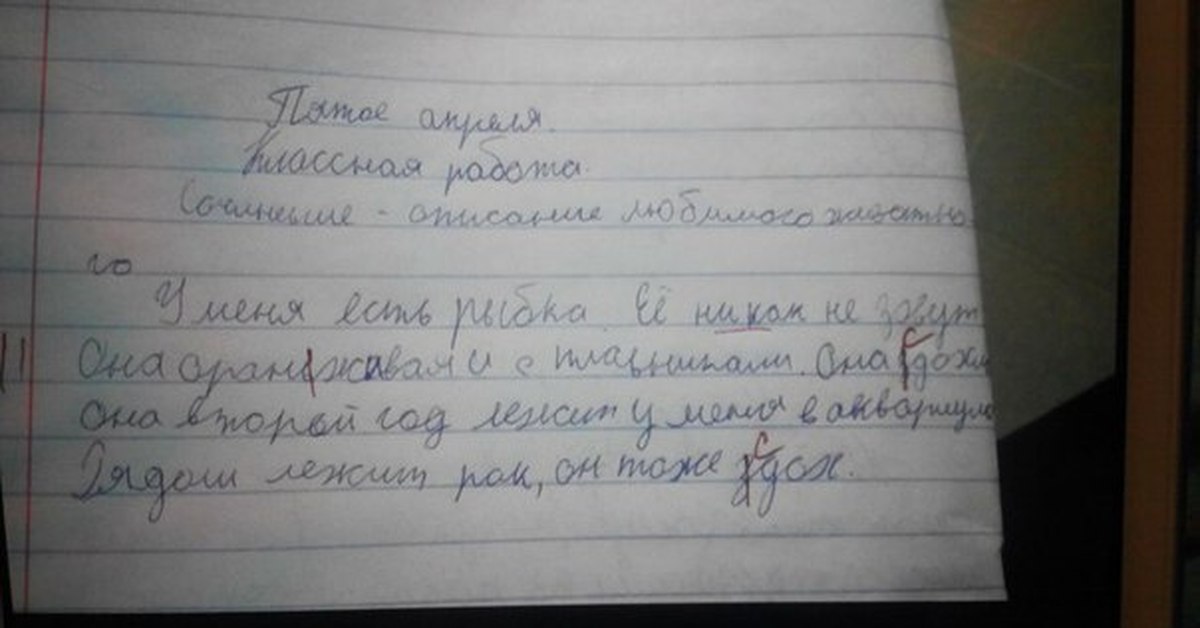 Пятое апреля.
Классная работа.
Сочинение - описание любимого животно-
го
У меня есть рыбка. Её никак не зовут
Она оранжывая и с плавниками. Она здохла
Она второй год лежит у меня в аквариуме
Рядом лежит рак, он тоже здох.